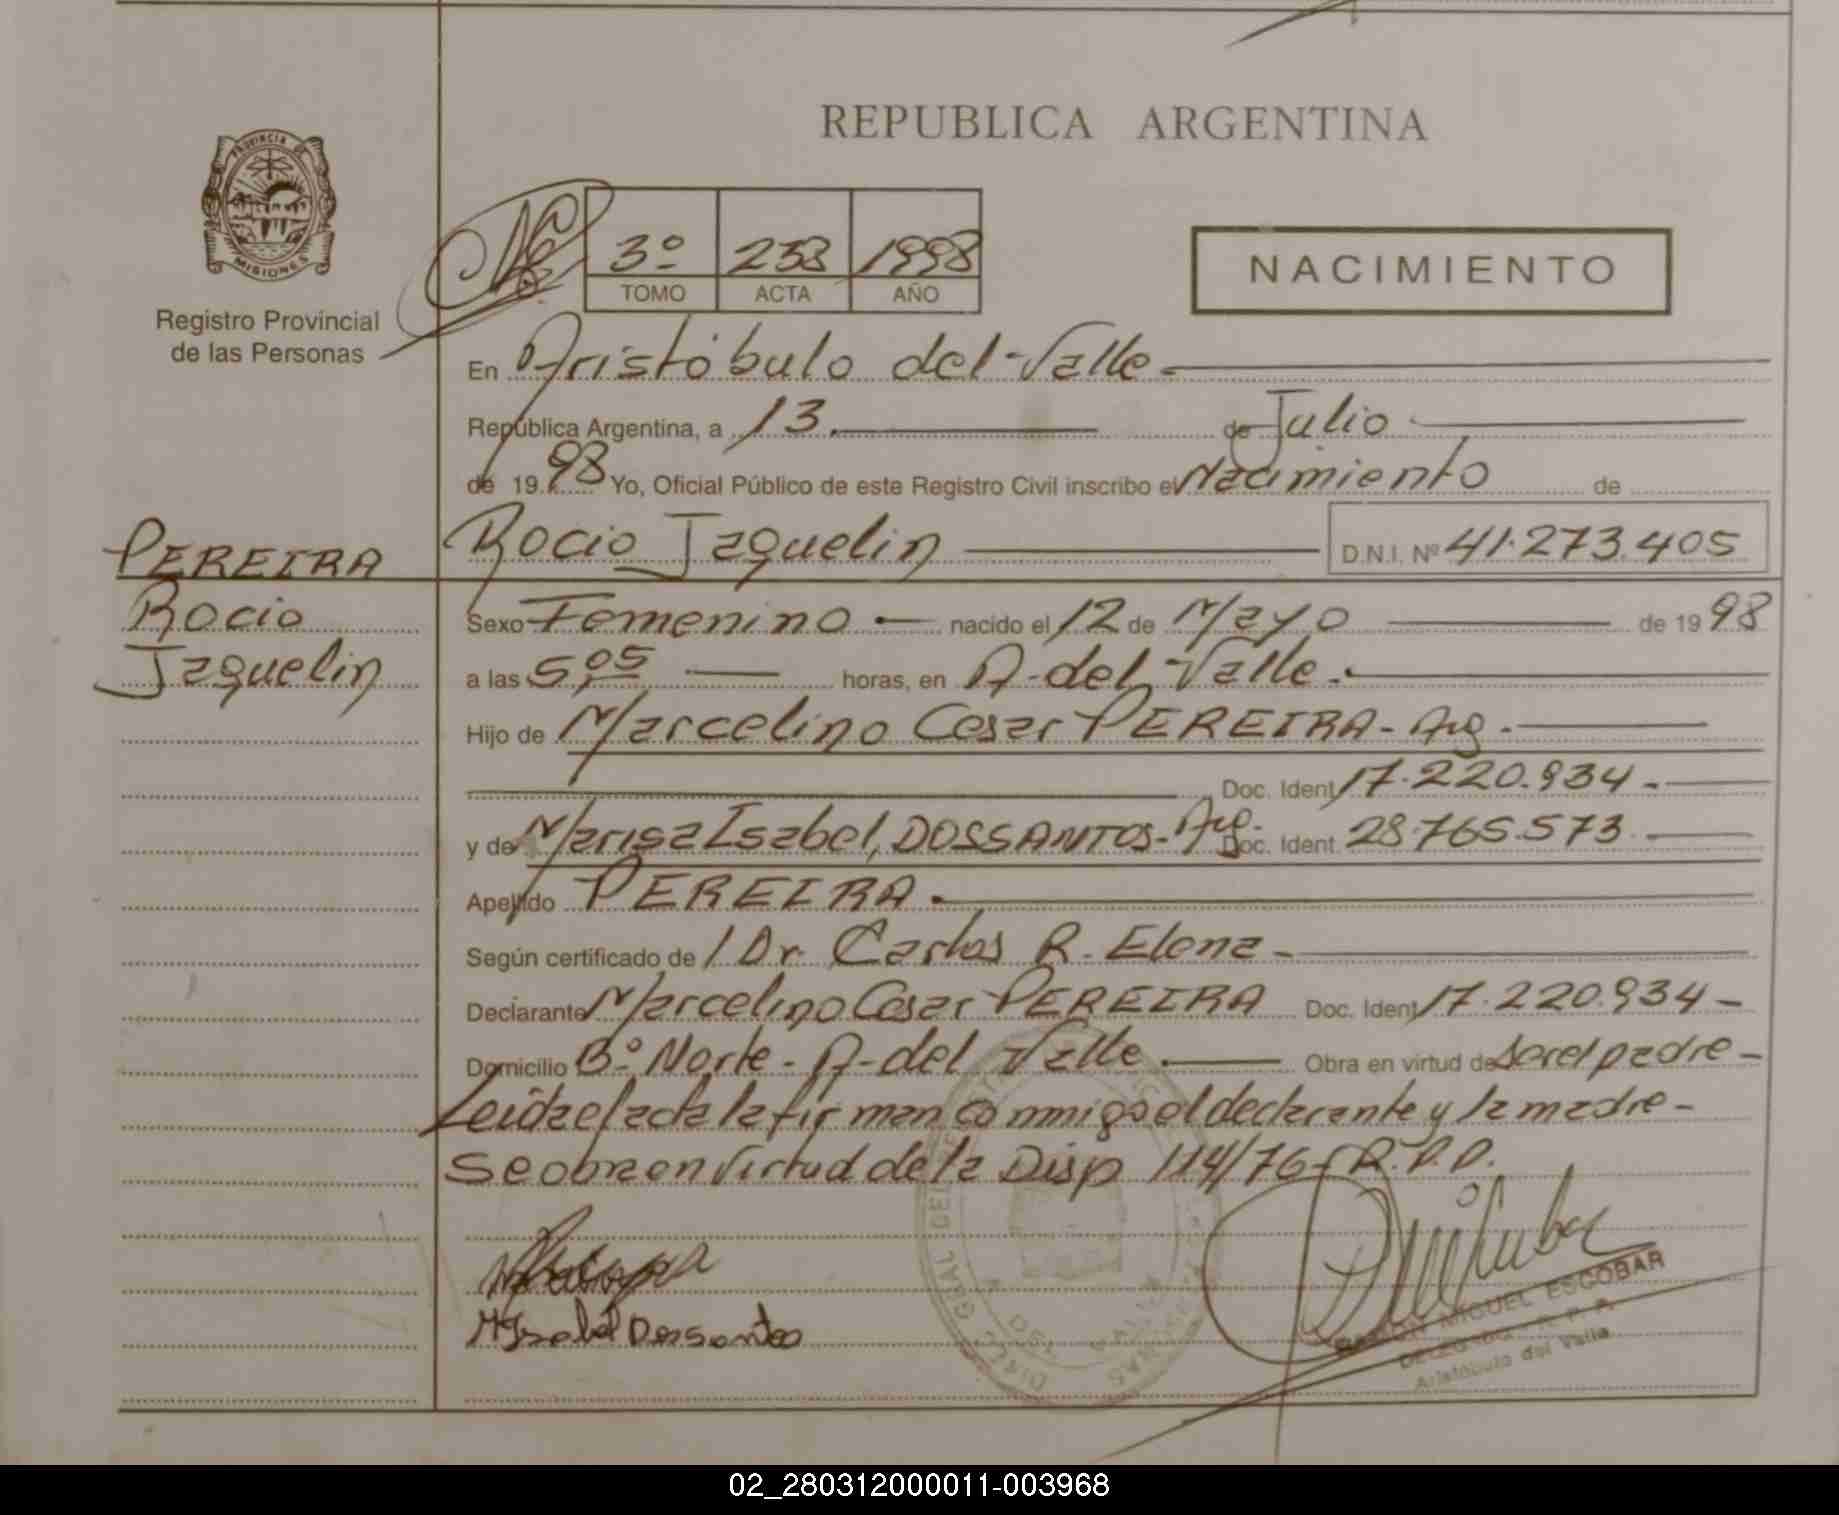 REPUBLICA ARGENTINA
PROVINCIA DE
MISIONES
Registro Provincial
de las Personas
3º 253 1998
TOMO ACTA AÑO
NACIMIENTO
En Aristóbulo del Valle
República Argentina, a 13 de Julio
de 1998 Yo, Oficial Público de este Registro Civil inscribo el Nacimiento de
Rocio Jaquelin D.N.I. Nº 41.273.405
PEREIRA
Rocio
Jaquelin
Sexo Femenino nacido el 12 de Mayo de 1998
a las 5,05 horas, en A. del Valle.
Hijo de Marcelino Cesar PEREIRA - Arg.
Doc. Ident. 17.220.934 -
y de Marisa Isabel, DOSSANTOS - Arg. Doc. Ident. 28.765.573
Apellido PEREIRA.
Según certificado de / Dr. Carlos R. Elena -
Declarante Marcelino Cesar PEREIRA Doc. Ident. 17.220.934 -
Domicilio Bº Norte - A. del Valle. Obra en virtud de ser el padre -
Leida el acta la firman conmigo el declarante y la madre -
Se obra en virtud de la Disp 114/76 - R.P.P.
M Isabel Dossantos
MIGUEL ESCOBAR
Aristóbulo del Valle
02_280312000011-003968